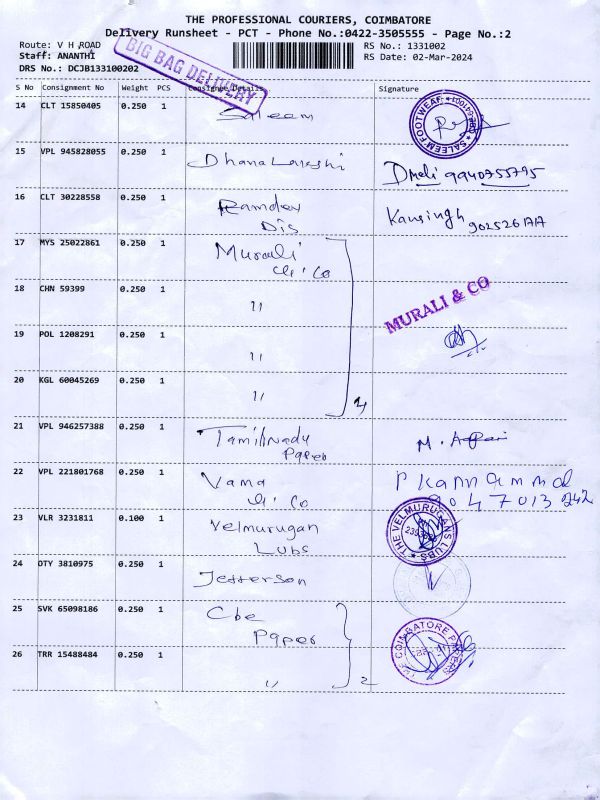 THE PROFESSIONAL COURIERS, COIMBATORE
Delivery Runsheet - PCT - Phone No.:0422-3505555 - Page No.:2
Route: V H ROAD
RS No.: 1331002
Staff: ANANTHI
RS Date: 02-Mar-2024
DRS No.: DCJB133100202
BIG BAG DELIVERY
S No Consignment No Weight PCS Consignee Details Signature
14 CLT 15850405 0.250 1 Saleem
SALEEM FOOTWEAR
15 VPL 945828055 0.250 1 Dhanalakshi
9940755795
16 CLT 30228558 0.250 1 Ramdev
Dis
Kansingh
17 MYS 25022861 0.250 1 Murali
& Co
18 CHN 59399 0.250 1 "
MURALI & CO
19 POL 1208291 0.250 1 "
20 KGL 60045269 0.250 1 "
4
21 VPL 946257388 0.250 1 Tamilnadu
Paper
M.
22 VPL 221801768 0.250 1 Vama
& Co
P Kannammal
9047013242
23 VLR 3231811 0.100 1 Velmurugan
Lubs
THE VELMURUGANS LUBS
24 OTY 3810975 0.250 1 Jefferson
25 SVK 65098186 0.250 1 Cbe
Paper
THE COIMBATORE
26 TRR 15488484 0.250 1 "
2